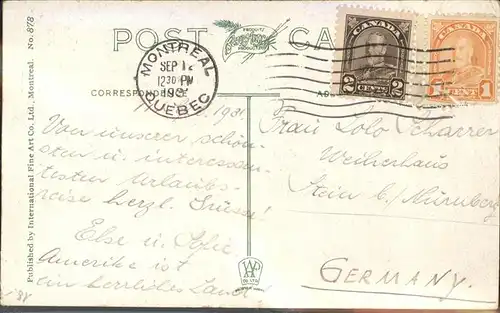 No. 878
Published by International Fine Art Co. Ltd., Montreal.
POST CA
CORRESPONDENCE
AD
MONTREAL
SEP 12
12 30 PM
193
QUEBEC
CANADA
2 CENTS 2
CANADA
1 CENT 1
1931.
Von unserer schön-
sten u. interessan-
testen Urlaubs-
reise herzl. Grüsse!
Else u.
Amerika ist
ein herrliches Land
Frau Lolo Scharrer
Weiherhaus
Stein b./Nürnberg
GERMANY.